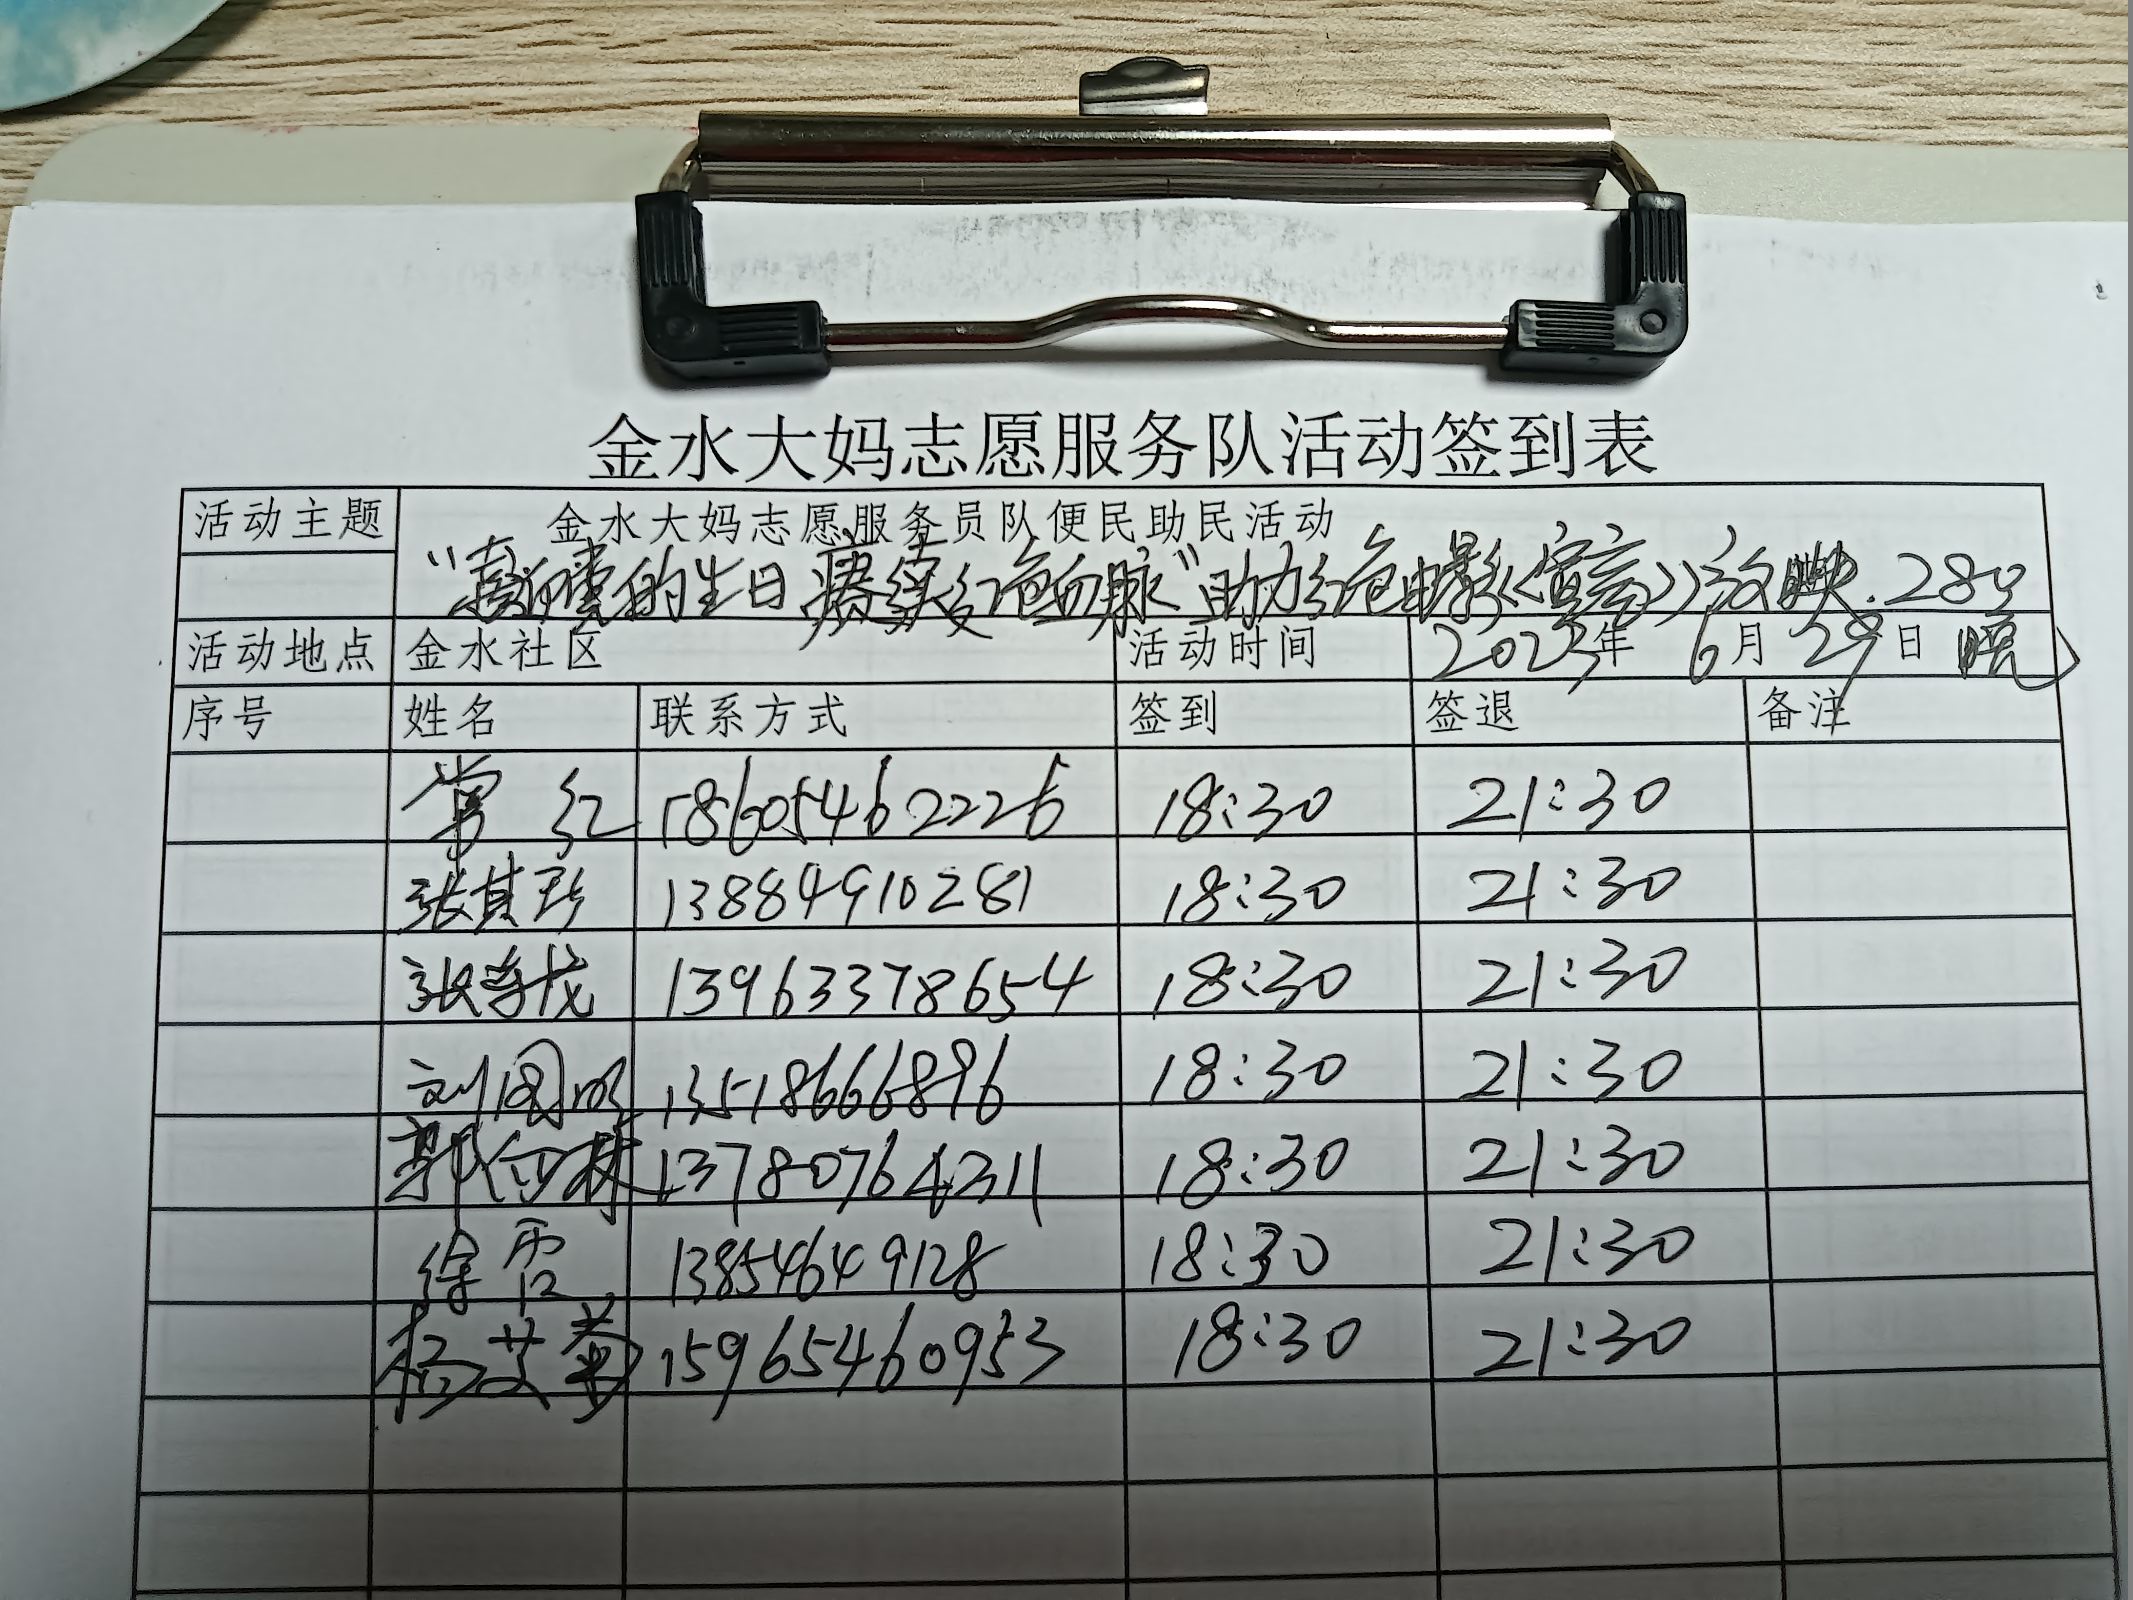 金水大妈志愿服务队活动签到表
活动主题 金水大妈志愿服务员队便民助民活动
的生日 赓续红色血脉"助力红色电影《宣言》放映.
活动地点 金水社区 活动时间 2023年 6月 29日 晚
序号 姓名 联系方式 签到 签退 备注
常红 18605462226 18:30 21:30
张其珍 13884910281 18:30 21:30
张 13963378654 18:30 21:30
刘国明 13518666896 18:30 21:30
郭 林 13780764311 18:30 21:30
徐霞 13854649128 18:30 21:30
杨艾菊 15965460953 18:30 21:30